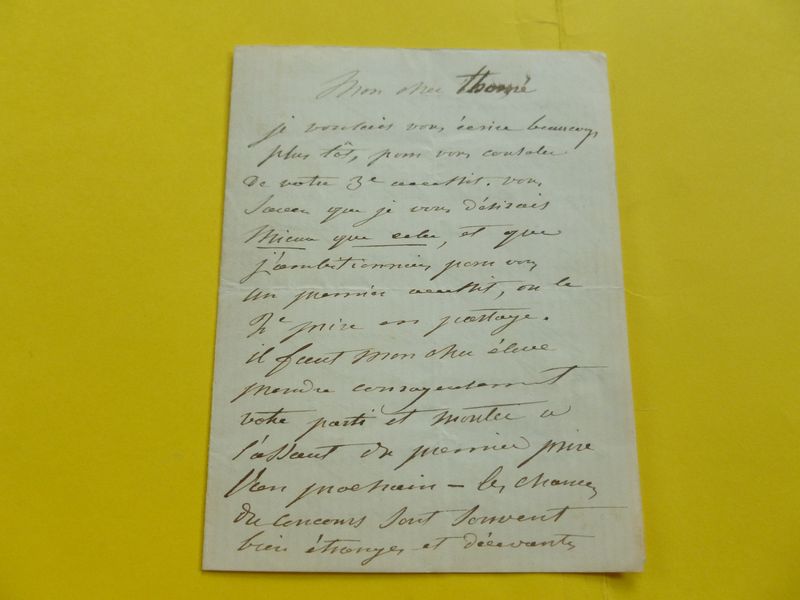 Mon cher Thomé
je voulais vous écrire beaucoup
plus tôt, pour vous consoler
de votre 3e accessit. vous
savez que je vous désirais
mieux que cela, et que
j'ambitionnais pour vous
un premier accessit, ou le
2e prix en partage.
il faut mon cher élève
prendre courageusement
votre parti et monter a
l'assaut du premier prix
l'an prochain — les chances
du concours sont souvent
bien étranges et décevantes